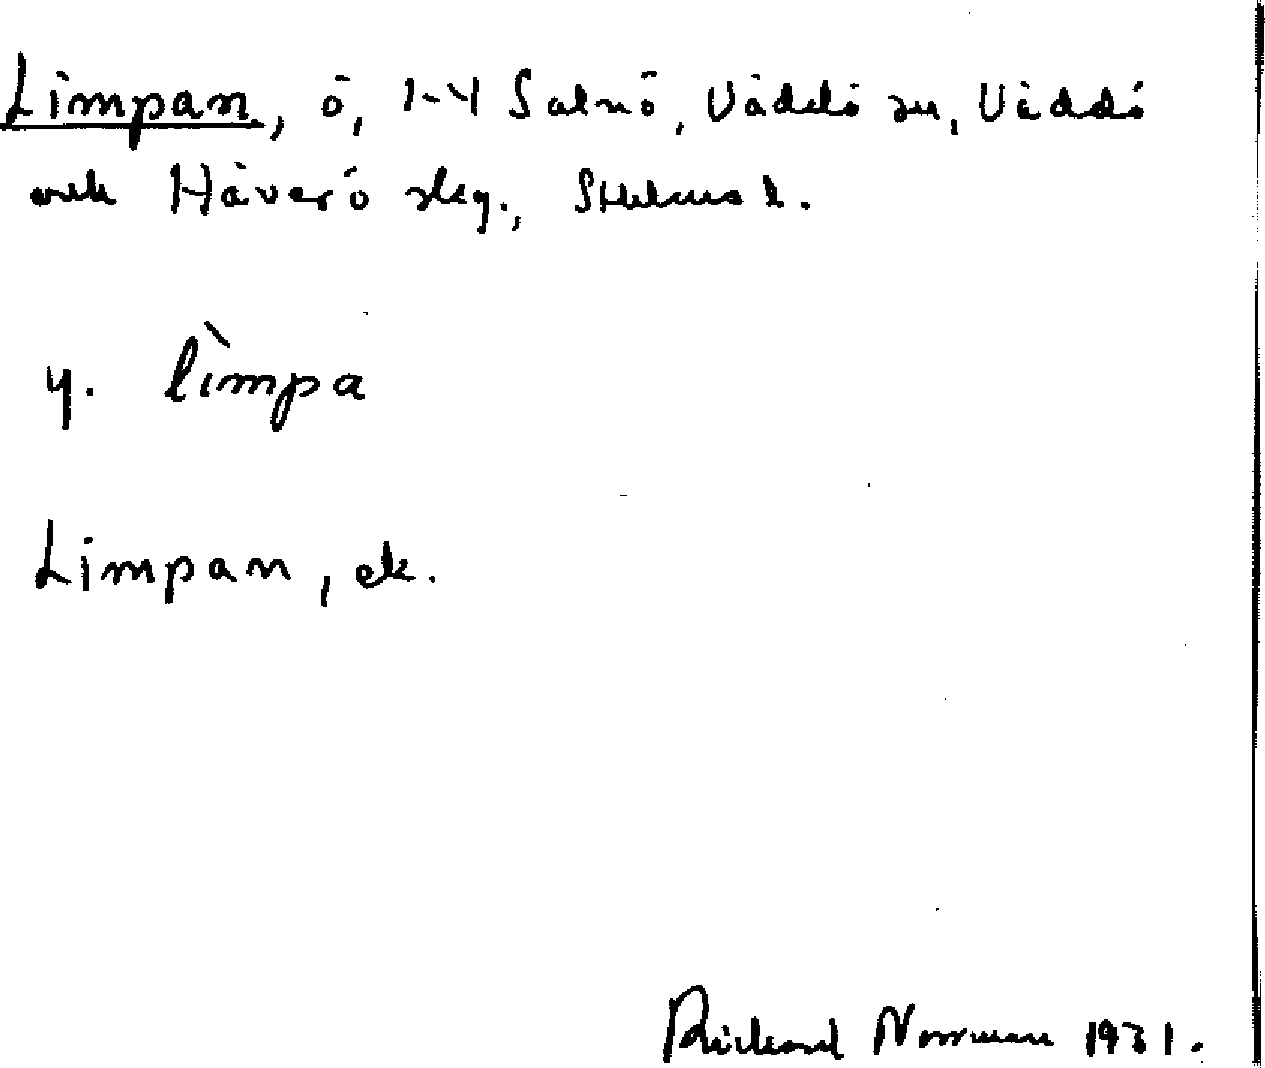 Limpan, ö, 1-4 Salnö, Väddö sn, Väddö
och Häverö skg., Sthlms l.
y. lìmpa
Limpan, ek.
Rickard Norrman 1931.